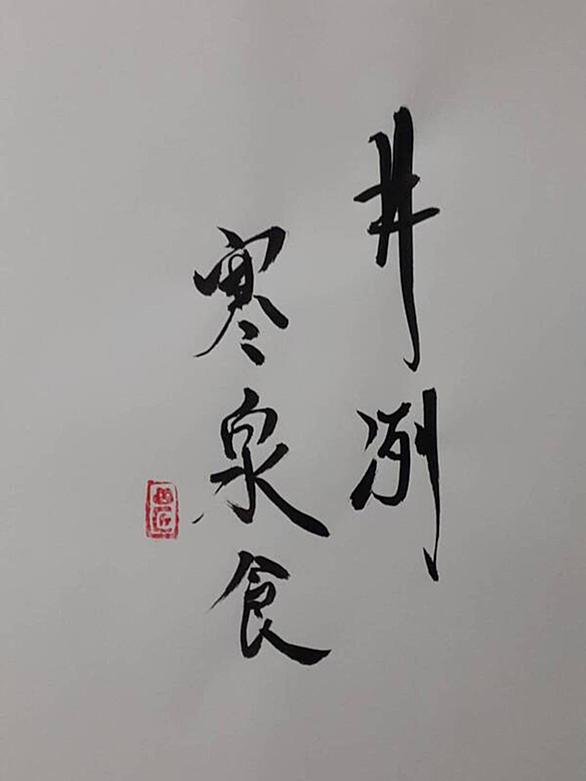 井冽
寒泉食